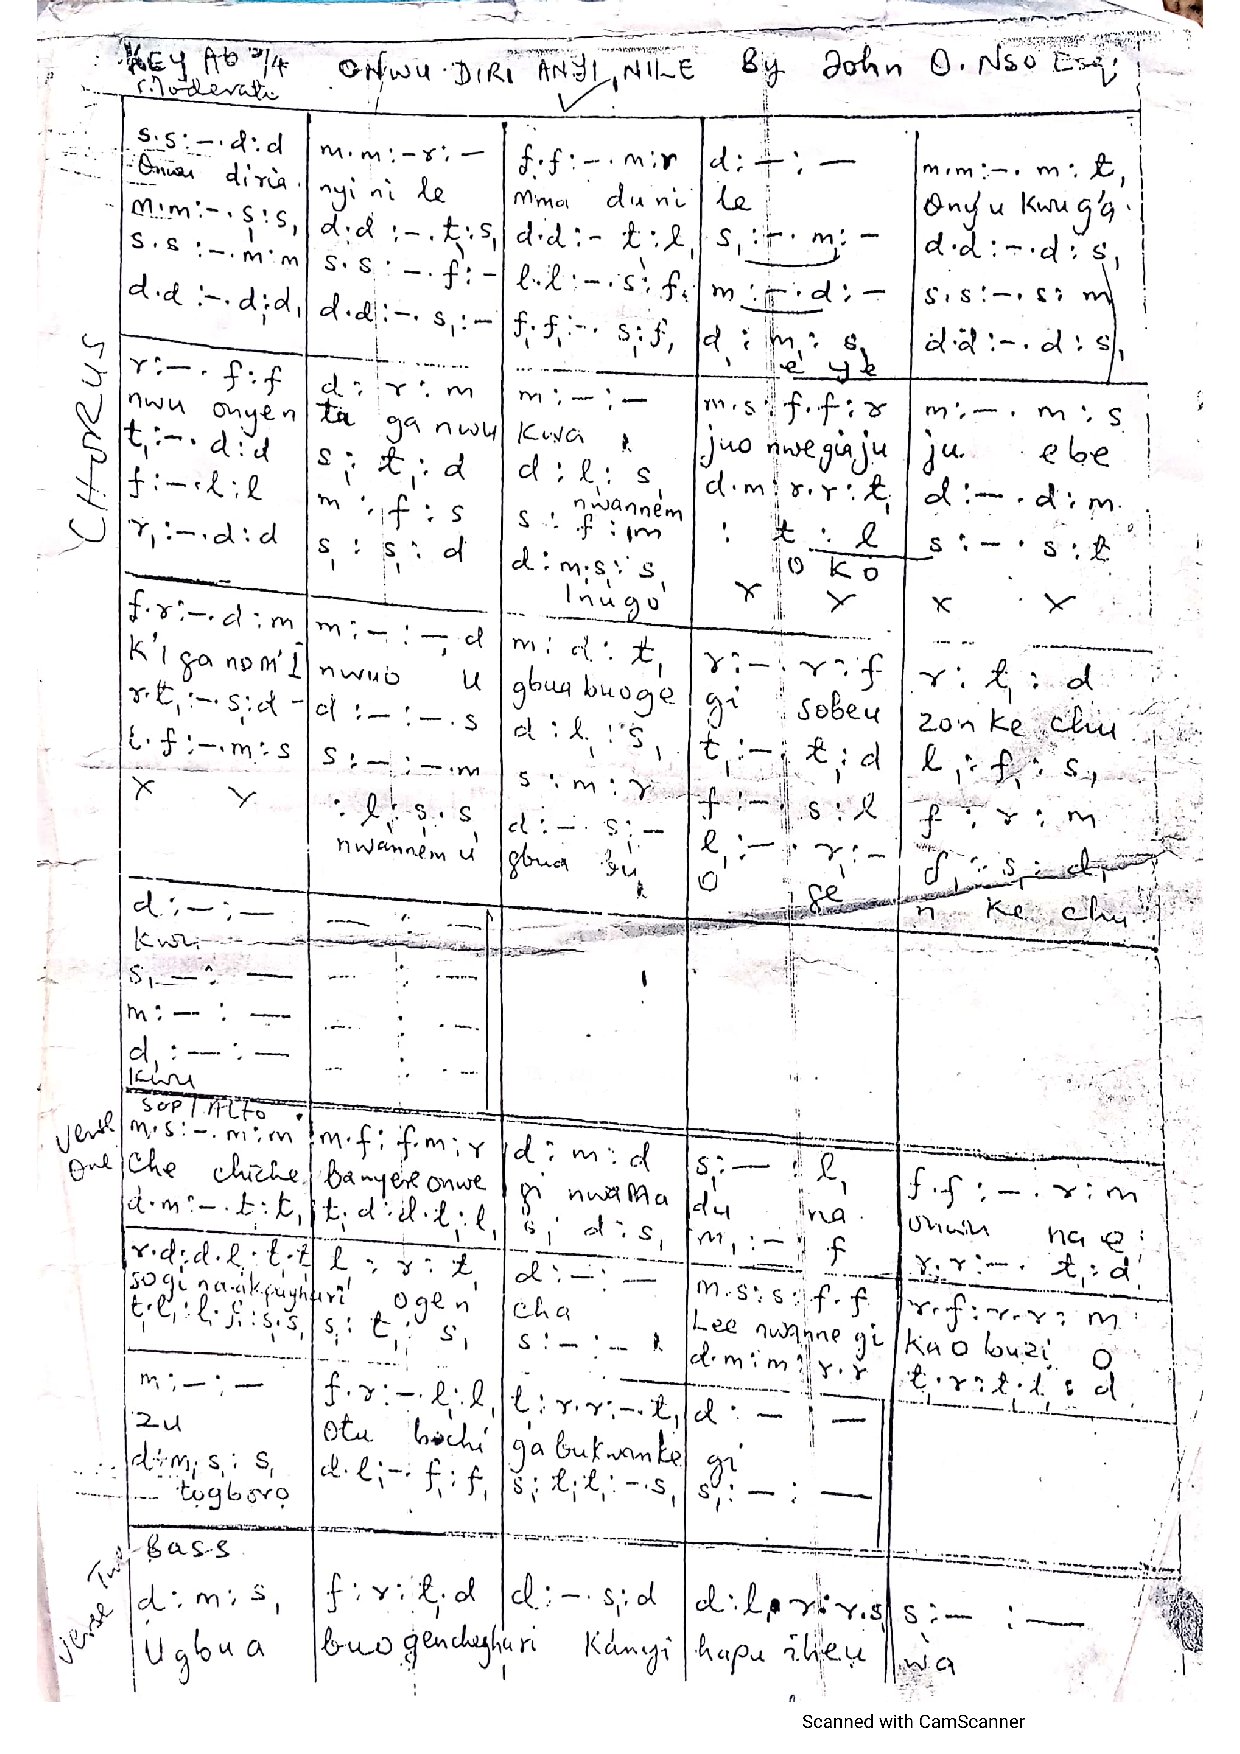 KEY Ab 3/4 ONWU DIRI ANYI NILE By John O. Nso Esq;
Moderato
CHORUS
s.s:-.d:d m.m:-r:- f.f:-.m:r d:-:- m.m:-.m:t,
Onwu diria nyi ni le mma du ni le Onyu kwu g'a
m.m:-.s,:s, d.d:-.t,:s, d.d:-t,:l, s,:-.m:- d.d:-.d:s,
s.s:-.m:m s.s:-.f:- l.l:-.s:f, m:-.d:- s.s:-.s:m
d.d:-.d:d, d.d:-.s,:- f,.f,:-.s,:f, d,:m,:s, d.d:-.d:s,
e ye
r:-.f:f d:r:m m:-:- m.s:f.f:r m:-.m:s
nwu onyen ta ga nwu kwa juo nwegiaju ju ebe
t,:-.d:d s,:t,:d d:l,:s, d.m:r.r:t, d:-.d:m
nwannem
f:-.l:l m:f:s s:f:m :t:l s:-.s:t
r,:-.d:d s,:s,:d d:m,s,:s, O ko
Inugo x x x x
f.r:-.d:m m:-:-,d m:d:t, r:-.r:f r:t,:d
k'i ga nom'I nwuo u gbua buoge gi sobeu zon ke chu
r.t,:-.s,:d- d:-:-.s d:l,:s, t,:-:t,:d l,:f,:s,
t.f:-.m:s s:-:-.m s:m:r f:-.s:l f:r:m
x x :l,:s,.s, d:-.s,:- l,:-.r,:- f,:s,:d,
nwannem u gbua bu O ge n ke chu
d:-:- - : -
kwu
s,-:- - : -
m:-:- - : -
d,:-:- - : -
kwu
Verse One
Sop/Alto
m.s:-.m:m m.f:f.m:r d:m:d s,:-:l, f.f:-.r:m
Che chiche banyere onwe gi nwa ma du na onwu na e
d.m:-.t,:t, t,:d:d.l,:l, s,:d:s, m,:-:f r.r:-.t,:d
r.d:d.l,:t.t l:r:t, d:-:- m.s:s:f.f r.f:r.r:m
so gi na akpughari ogen cha Lee nwanne gi ka o buzi o
t.l,:l,.s,:s,.s, s,:t,:s, s:-:- d.m:m:r.r t,.r:t.t,:d
m:-:- f.r:-.l,:l, t,:r.r:-.t, d:-:-
zu Otu bochi ga bukwanke gi
d:m,s,:s, d.l,:-.f,:f, s,:t,.t,:-.s, s,:-:-
togboro
Verse Two
Bass
d:m:s, f:r:t,.d d:-.s,:d d:l,.r:r.s, s:-:-
Ugbua buogencheghari Kanyi hapu iheu wa
Scanned with CamScanner